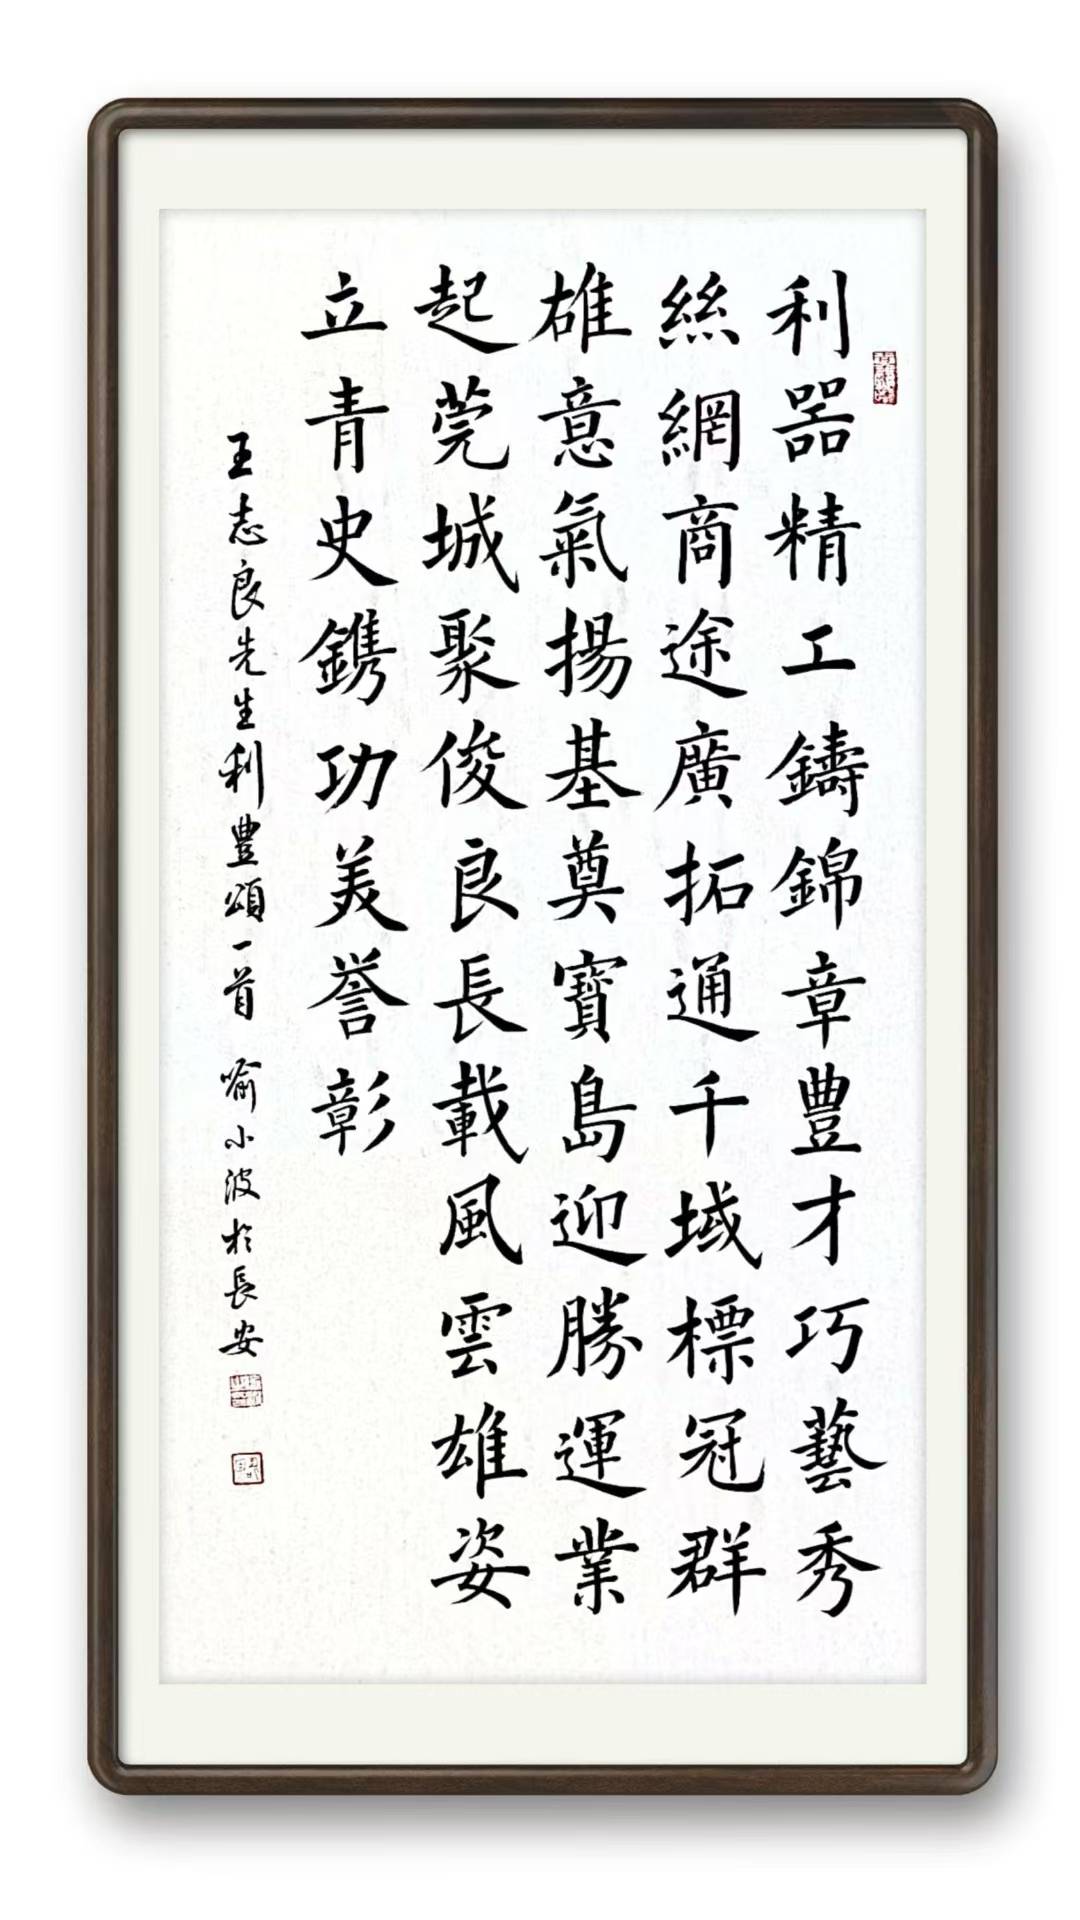 利器精工鑄錦章豊才巧藝秀
絲網商途廣拓通千域標冠群
雄意氣揚基奠寶島迎勝運業
起莞城聚俊良長載風雲雄姿
立青史鐫功美誉彰
王志良先生利豊頌一首 喻小波於長安